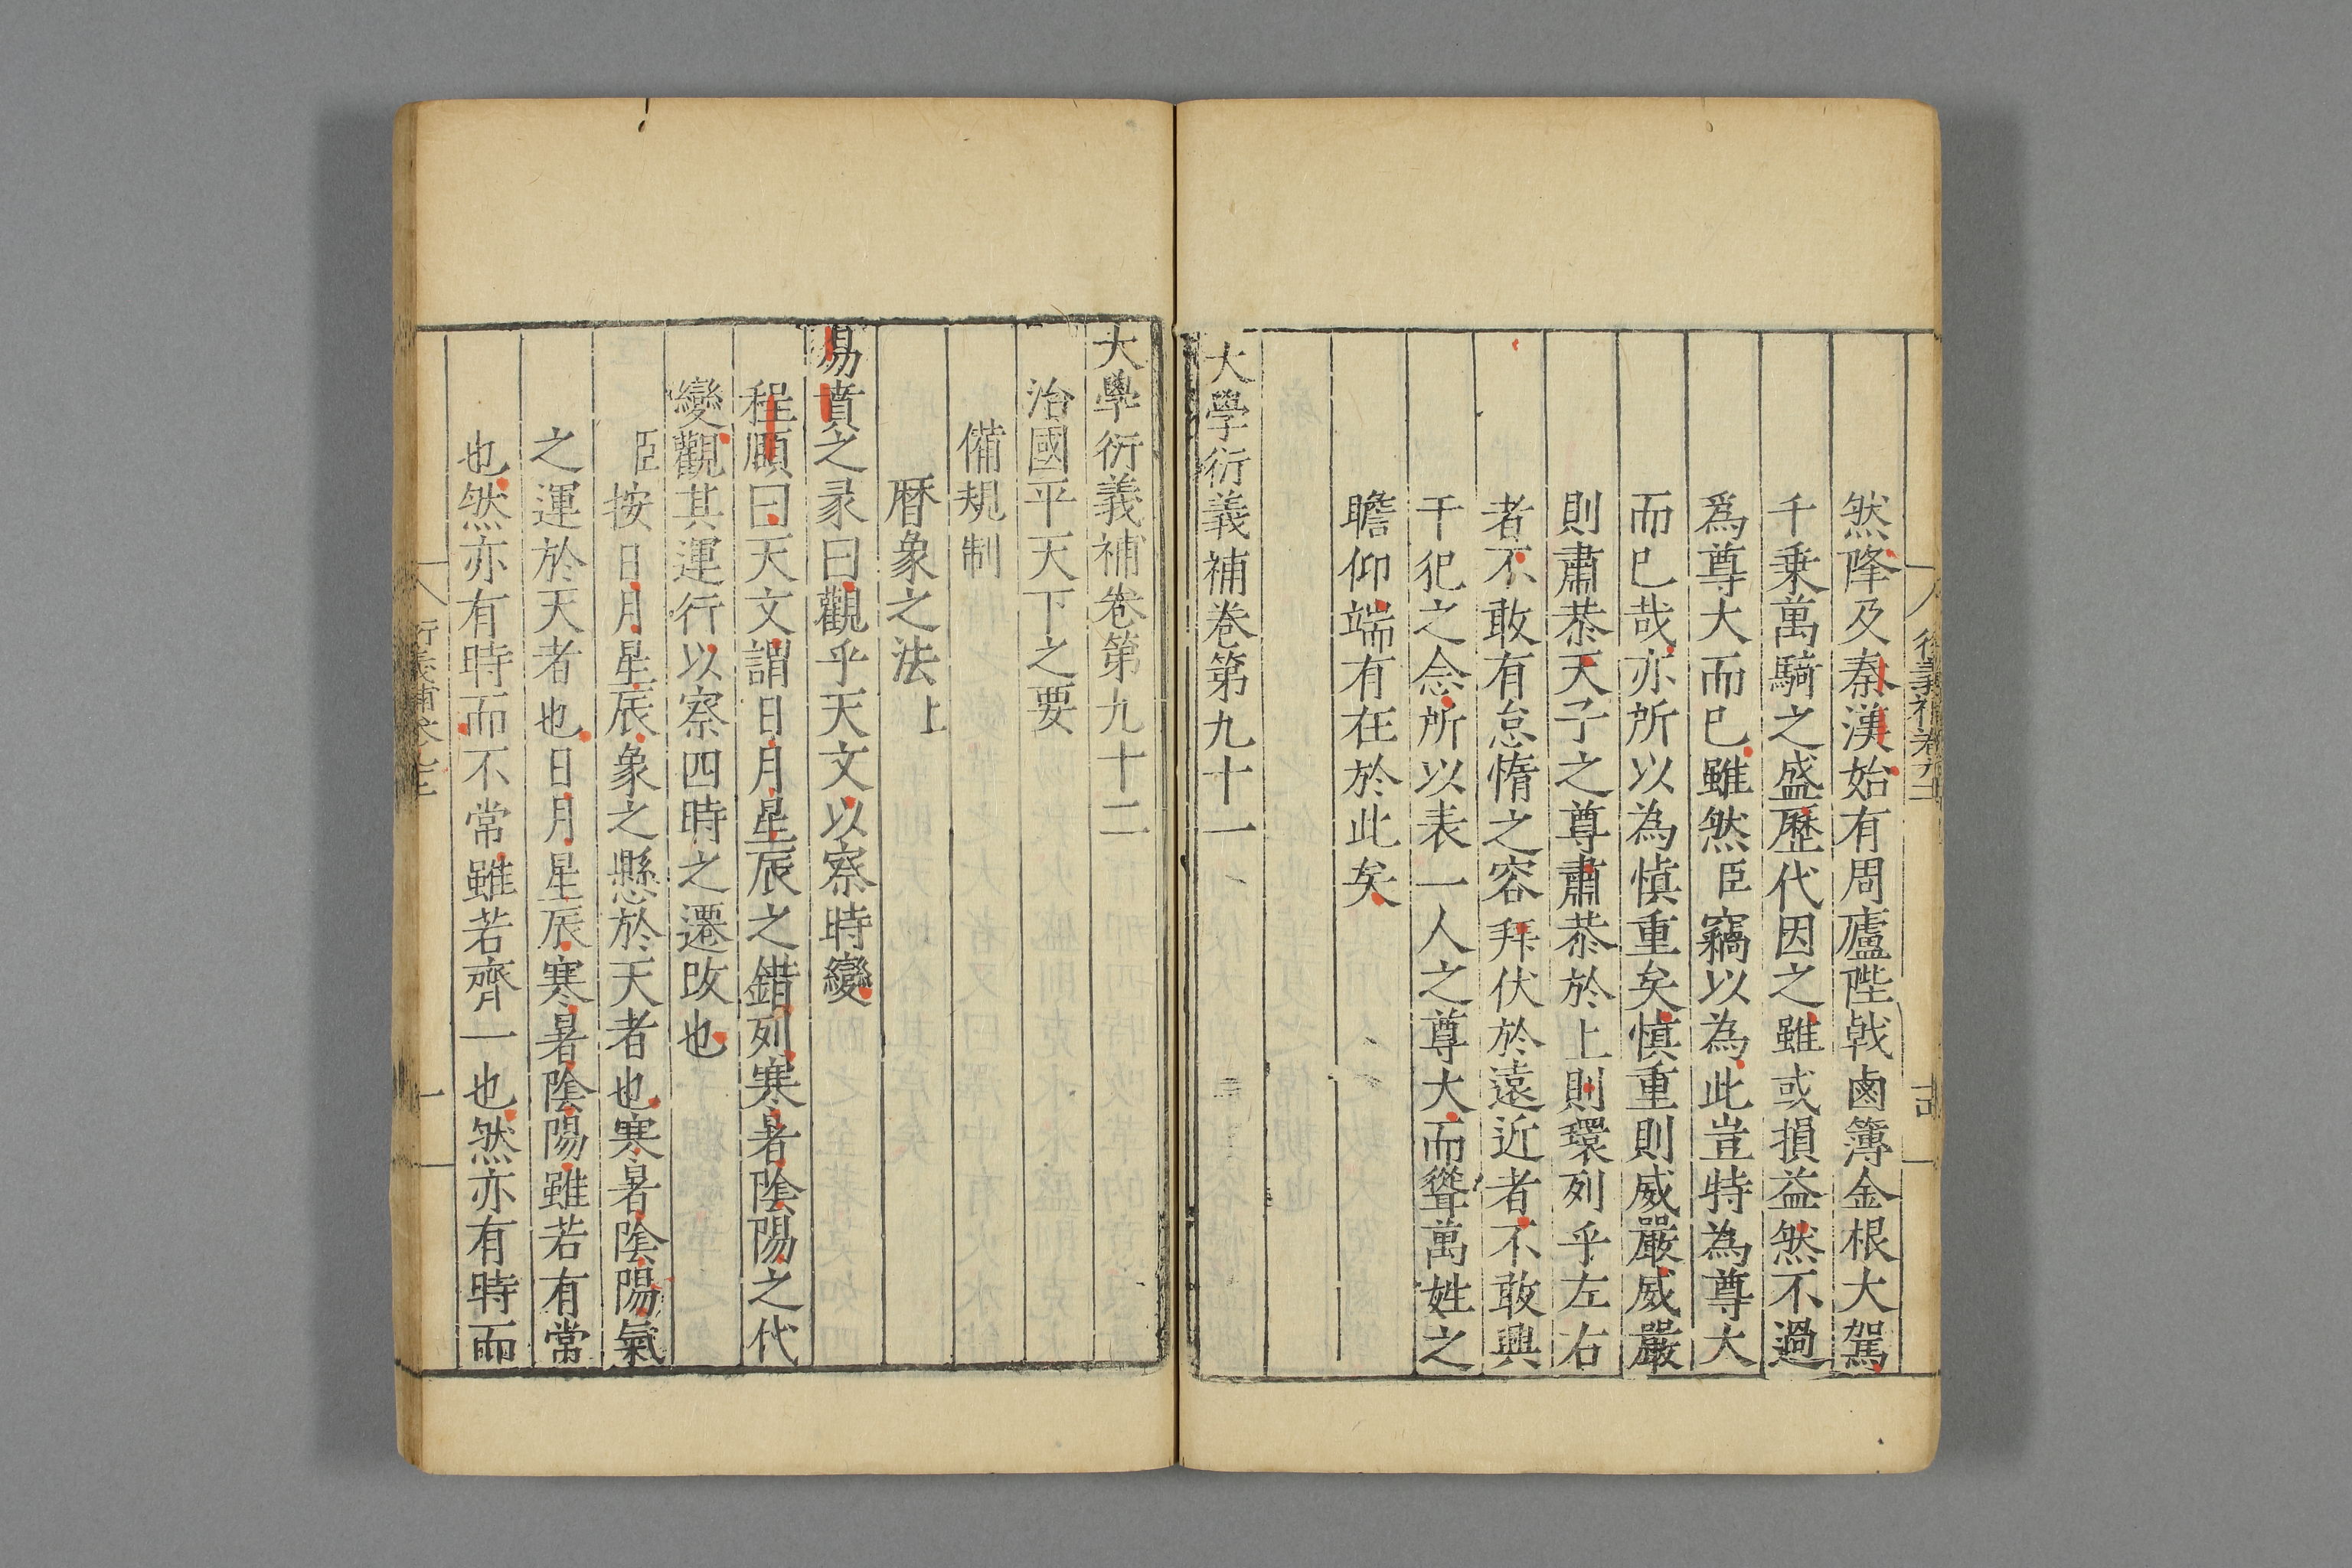 然降及秦漢始有周廬陛戟鹵簿金根大駕
千乗萬騎之盛歷代因之雖或損益然不過
爲尊大而已雖然臣竊以為此豈特為尊大
而已哉亦所以為慎重矣慎重則威嚴威嚴
則肅恭天子之尊肅恭於上則環列乎左右
者不敢有怠惰之容拜伏於遠近者不敢興
干犯之念所以表一人之尊大而聳萬姓之
瞻仰端有在於此矣
大學衍義補卷第九十一
大學衍義補卷第九十二
治國平天下之要
備規制
曆象之法上
易賁之彖曰觀乎天文以察時變
程頤曰天文謂日月星辰之錯列寒暑陰陽之代
變觀其運行以察四時之遷改也
臣按日月星辰象之懸於天者也寒暑陰陽氣
之運於天者也日月星辰寒暑陰陽雖若有常
也然亦有時而不常雖若齊一也然亦有時而